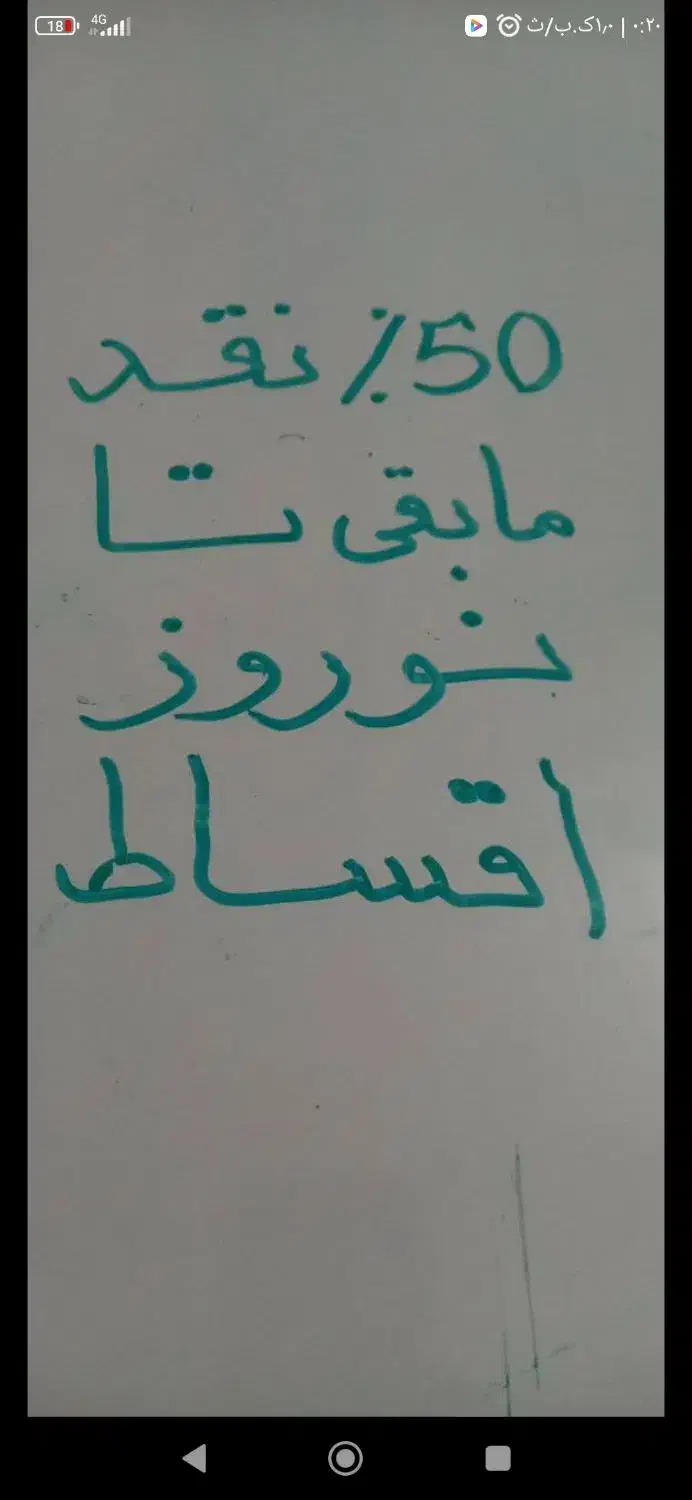 18 4G ۱٫۰ک.ب/ث | ۰:۲۰
50٪ نقد
مابقی تا
نوروز
اقساط